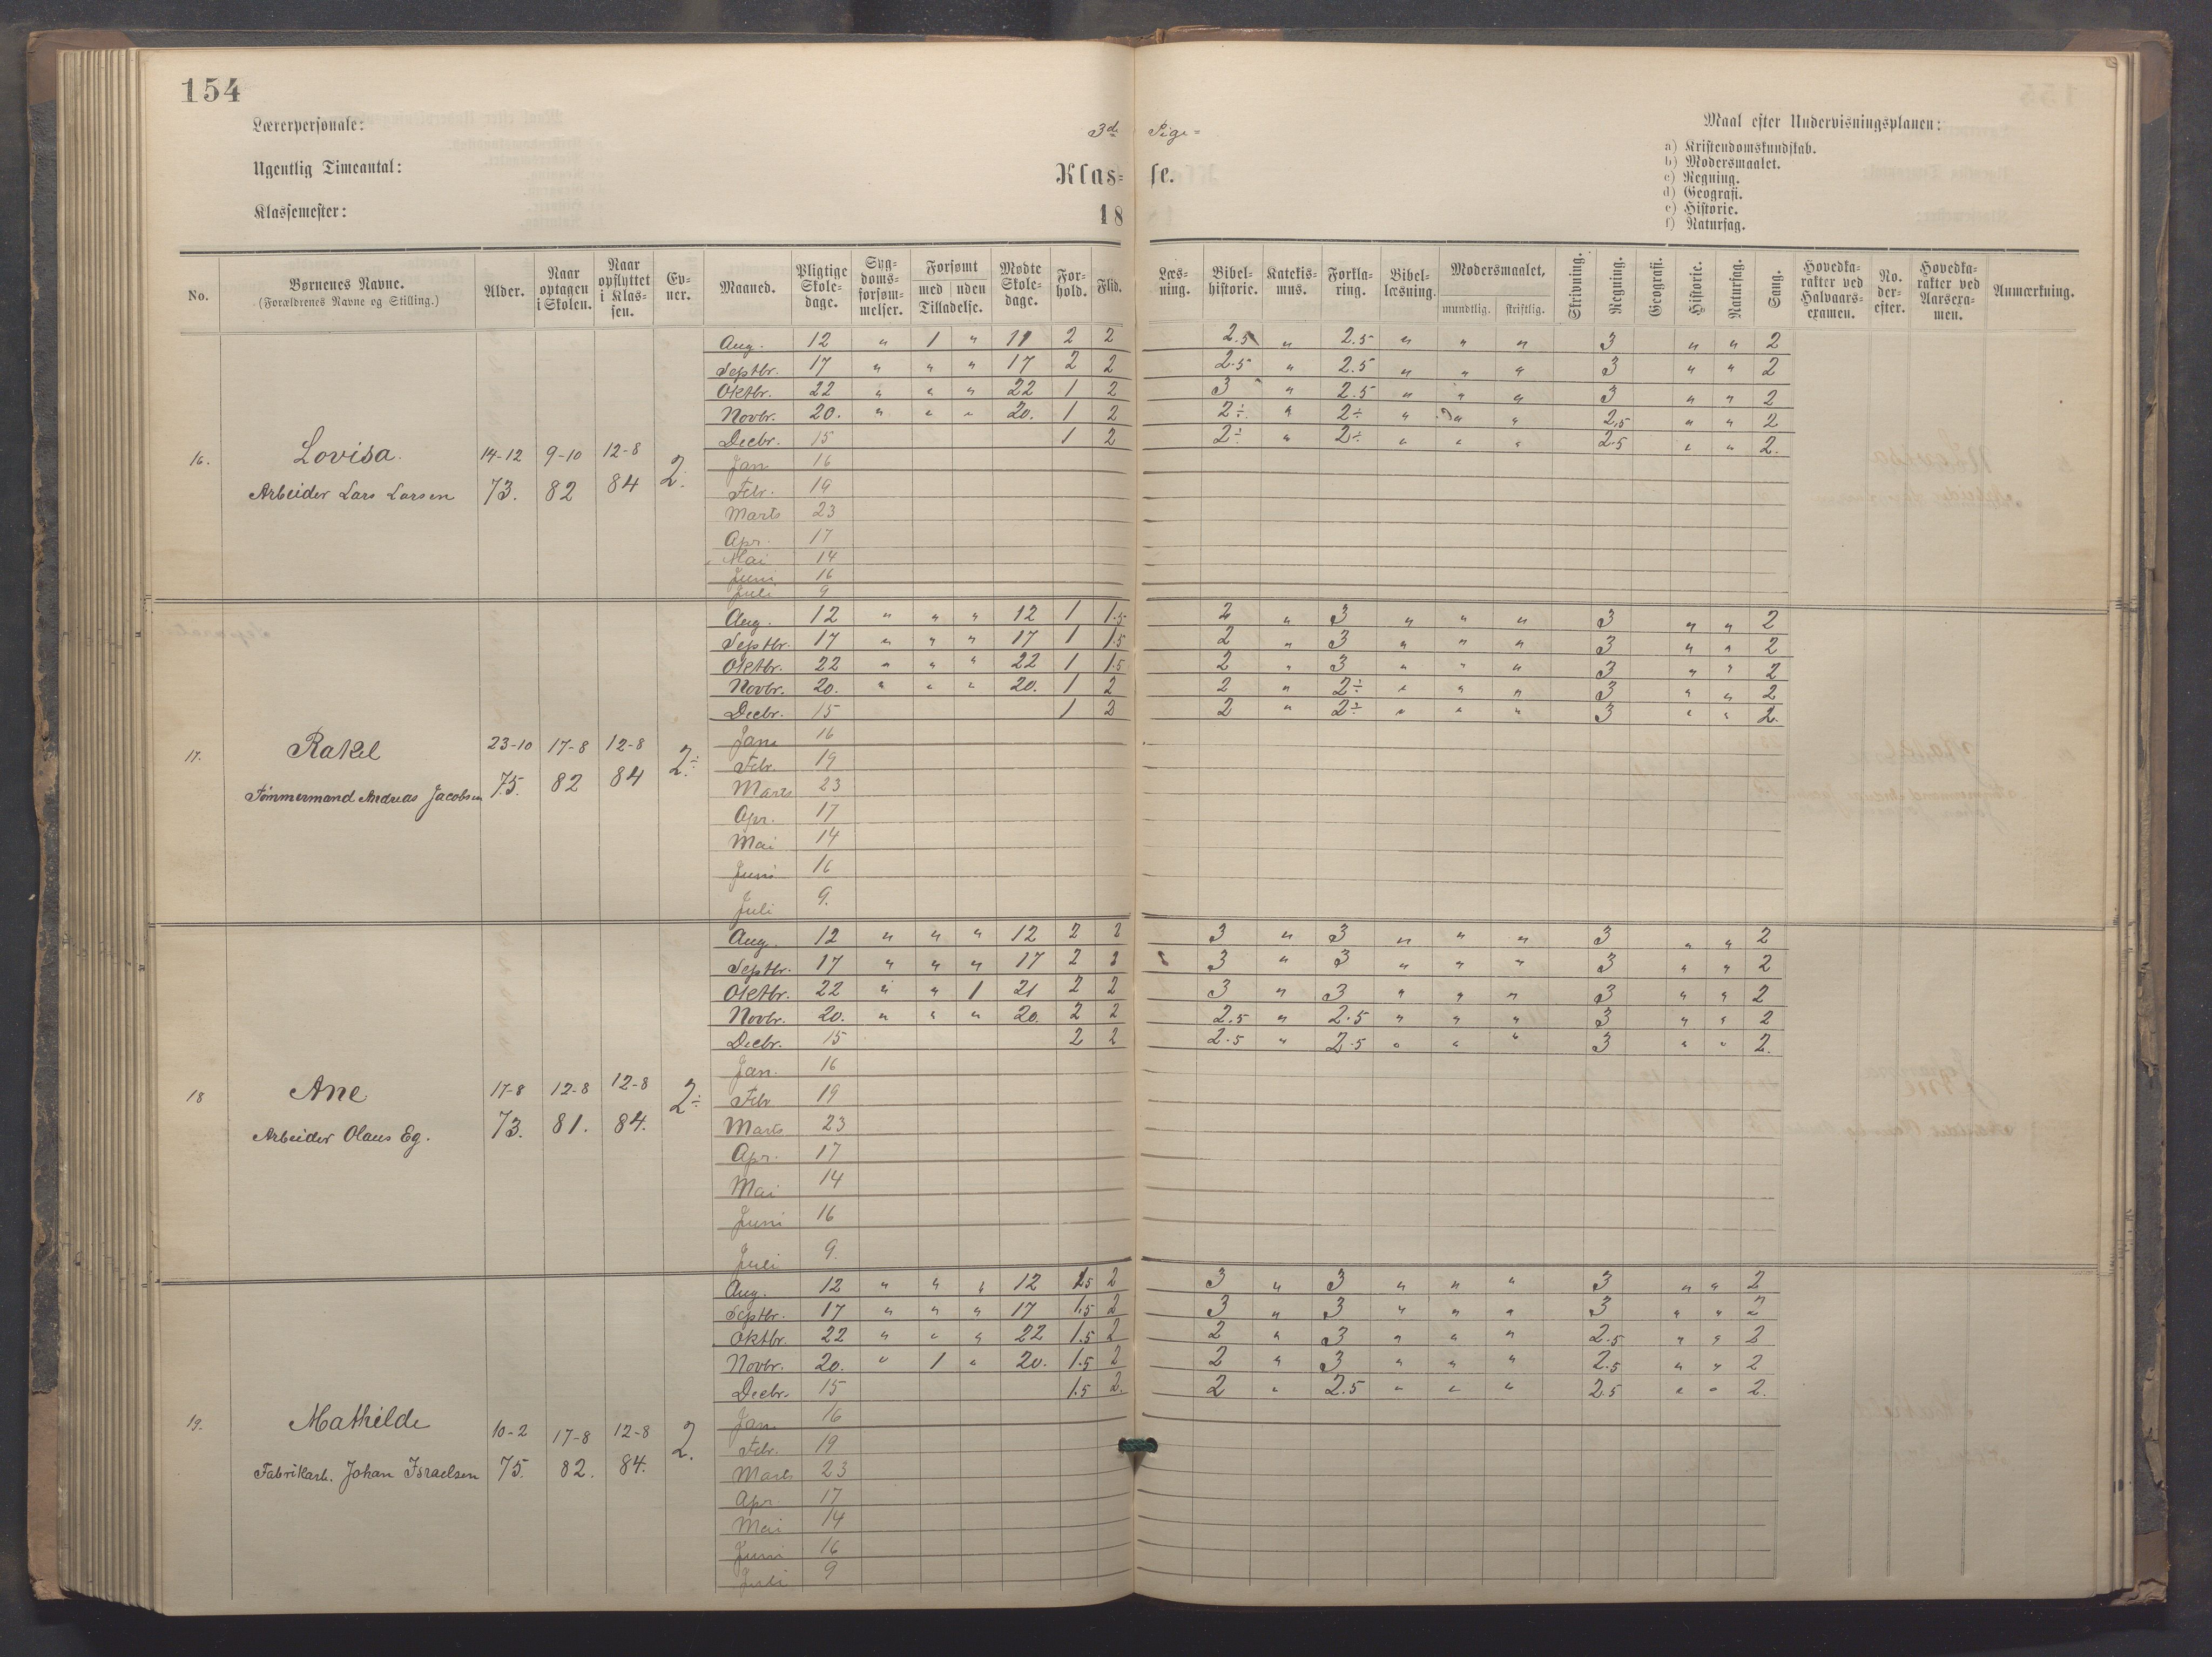 154
Lærerpersonale:
Ugentlig Timeantal:
Klassemester:
3de Pige=
Klas= se.
18
Maal efter Undervisningsplanen:
a) Kristendomskundskab.
b) Modersmaalet.
c) Regning.
d) Geografi.
e) Historie.
f) Naturfag.
No. | Børnenes Navne. (Forældrenes Navne og Stilling.) | Alder. | Naar optagen i Skolen. | Naar opflyttet i Klas-sen. | Ev-ner. | Maaned. | Pligtige Skole-dage. | Syg-doms-forsøm-melser. | Forsømt med uden Tilladelse. | Mødte Skole-dage. | For-hold. | Flid. | Læs-ning. | Bibel-historie. | Katekis-mus. | Forkla-ring. | Bibel-læsning. | Modersmaalet, mundtlig. skriftlig. | Skrivning. | Regning. | Geografi. | Historie. | Naturfag. | Sang. | Hovedka-rakter ved Halvaars-examen. | No. der-efter. | Hovedka-rakter ved Aarsexa-men. | Anmærkning.
16. Lovisa. 14-12 9-10 12-8
Arbeider Lars Larsen 73. 82 84 2.
Aug. 12 " 1 " 11 2 2 2.5 " 2.5 " " " 3 " " 2
Septbr. 17 " " " 17 2 2 2.5 " 2.5 " " " 3 " " 2
Oktbr. 22 " " " 22 1 2 3 " 2.5 " " " 3 " " 2
Novbr. 20. " " " 20. 1 2 2÷ " 2÷ " " " 2.5 " " 2
Decbr. 15 1 2 2÷ " 2÷ " " " 2.5 " " 2.
Jan 16
Febr. 19
Marts 23
Apr. 17
Mai 14
Juni 16
Juli 9
17. Rakel 23-10 17-8 12-8
Tømmermand Andreas Jacobsen 75. 82 84 2÷
Aug. 12 " " " 12 1 1.5 2 " 3 " " " 3 " " 2
Septbr. 17 " " " 17 1 1.5 2 " 3 " " " 3 " " 2
Oktbr. 22 " " " 22 1 1.5 2 " 3 " " " 3 " " 2
Novbr. 20. " " " 20. 1 2 2 " 2÷ " " " 3 " " 2
Decbr. 15 1 2 2 " 2÷ " " " 3 " " 2.
Jan. 16
Febr. 19
Marts 23
Apr. 17
Mai 14
Juni 16
Juli 9.
18 Ane 17-8 12-8 12-8
Arbeider Olaus Eg. 73. 81. 84. 2÷
Aug. 12 " " " 12 2 2 3 " 3 " " " 3 " " 2
Septbr. 17 " " " 17 2 3 " 3 " " " 3 " " 2
Oktbr. 22 " " 1 21 2 2 3 " 3 " " " 3 " " 2
Novbr. 20. " " " 20. 2 2 2.5 " 2.5 " " " 3 " " 2
Decbr. 15 2 2 2.5 " 2.5 " " " 3 " " 2.
Jan. 16
Febr 19
Marts 23
Apr. 17
Mai 14
Juni 16
Juli 9.
19. Mathilde 10-2 17-8 12-8
Fabrikarb. Johan Israelsen 75. 82. 84. 2.
Aug. 12 " " " 12 1.5 2 3 " 3 " " " 3 " " 2
Septbr. 17 " " " 17 1.5 2 3 " 3 " " " 3 " " 2
Oktbr. 22 " " " 22 1.5 2 2 " 3 " " " 2.5 " " 2
Novbr. 20. " 1 " 20. 1.5 2 2 " 3 " " " 2.5 " " 2
Decbr. 15 1.5 2. 2 " 2.5 " " " 2.5 " " 2.
Jan. 16
Febr. 19
Marts 23
Apr. 17
Mai 14
Juni 16
Juli 9